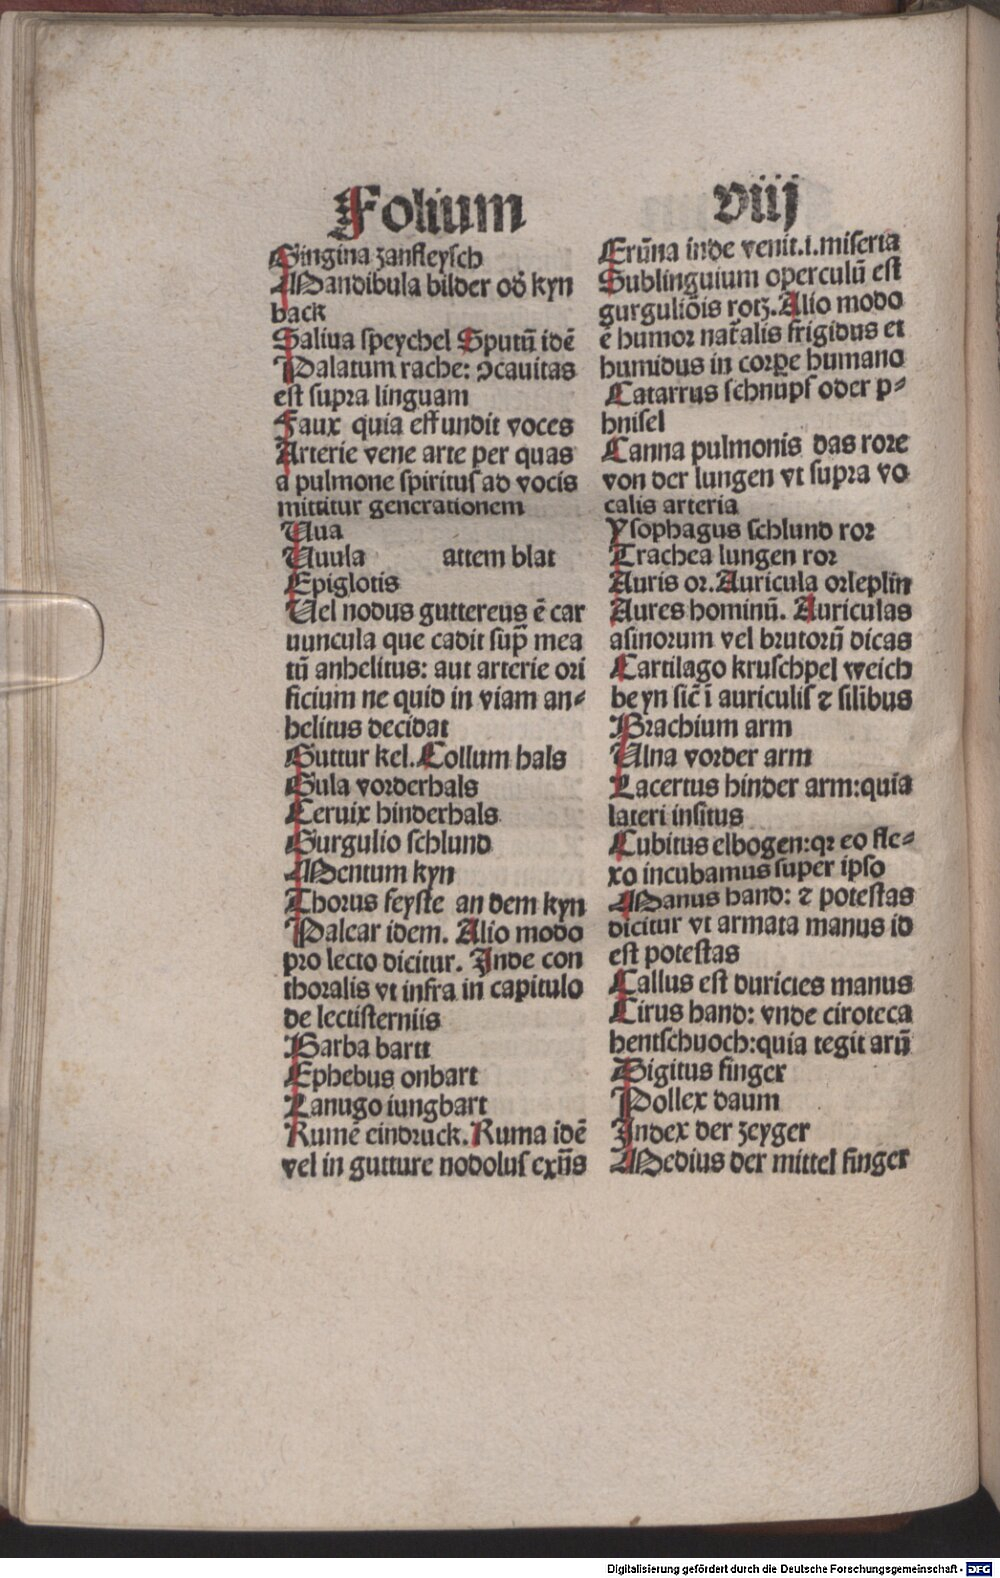 Folium viij
Gingina zanfleysch
Mandibula bilder od̉ kyn
back
Saliua speychel Sputū idē
Palatum rache: ↄcauitas
est supra linguam
Faux quia effundit voces
Arterie vene arte per quas
a pulmone spiritus ad vocis
mittitur generationem
Uua
Uuula attem blat
Epiglotis
Uel nodus guttereus ē car
uuncula que cadit sup̄ mea
tū anhelitus: aut arterie ori
ficium ne quid in viam an⸗
helitus decidat
Guttur kel. Collum hals
Gula vorderhals
Ceruix hinderhals
Gurgulio schlund
Mentum kyn
Thorus feyste an dem kyn
Palear idem. Alio modo
pro lecto dicitur. Inde con
thoralis vt infra in capitulo
de lectisterniis
Barba bartt
Ephebus onbart
Lanugo iungbart
Rumē eindruck. Ruma idē
vel in gutture nodolus exn̄s
Erūna inde venit.i.miseria
Sublinguium operculū est
gurguliōis rotz. Alio modo
ē humor nat̄alis frigidus et
humidus in corꝑe humano
Catarrus schnupf oder p⸗
hnisel
Canna pulmonis das rore
von der lungen vt supra vo
calis arteria
Ysophagus schlund ror
Trachea lungen ror
Auris or. Auricula orleplin
Aures hominū. Auriculas
asinorum vel brutorū dicas
Cartilago kruschpel weich
beyn sic̄ ī auriculis ⁊ silībus
Brachium arm
Ulna vorder arm
Lacertus hinder arm:quia
lateri insitus
Cubitus elbogen:qꝛ eo fle⸗
xo incubamus super ipso
Manus hand: ⁊ potestas
dicitur vt armata manus id
est potestas
Callus est duricies manus
Cirus hand: vnde ciroteca
hentschuoch:quia tegit arū
Digitus finger
Pollex daum
Index der zeyger
Medius der mittel finger
Digitalisierung gefördert durch die Deutsche Forschungsgemeinschaft - DFG